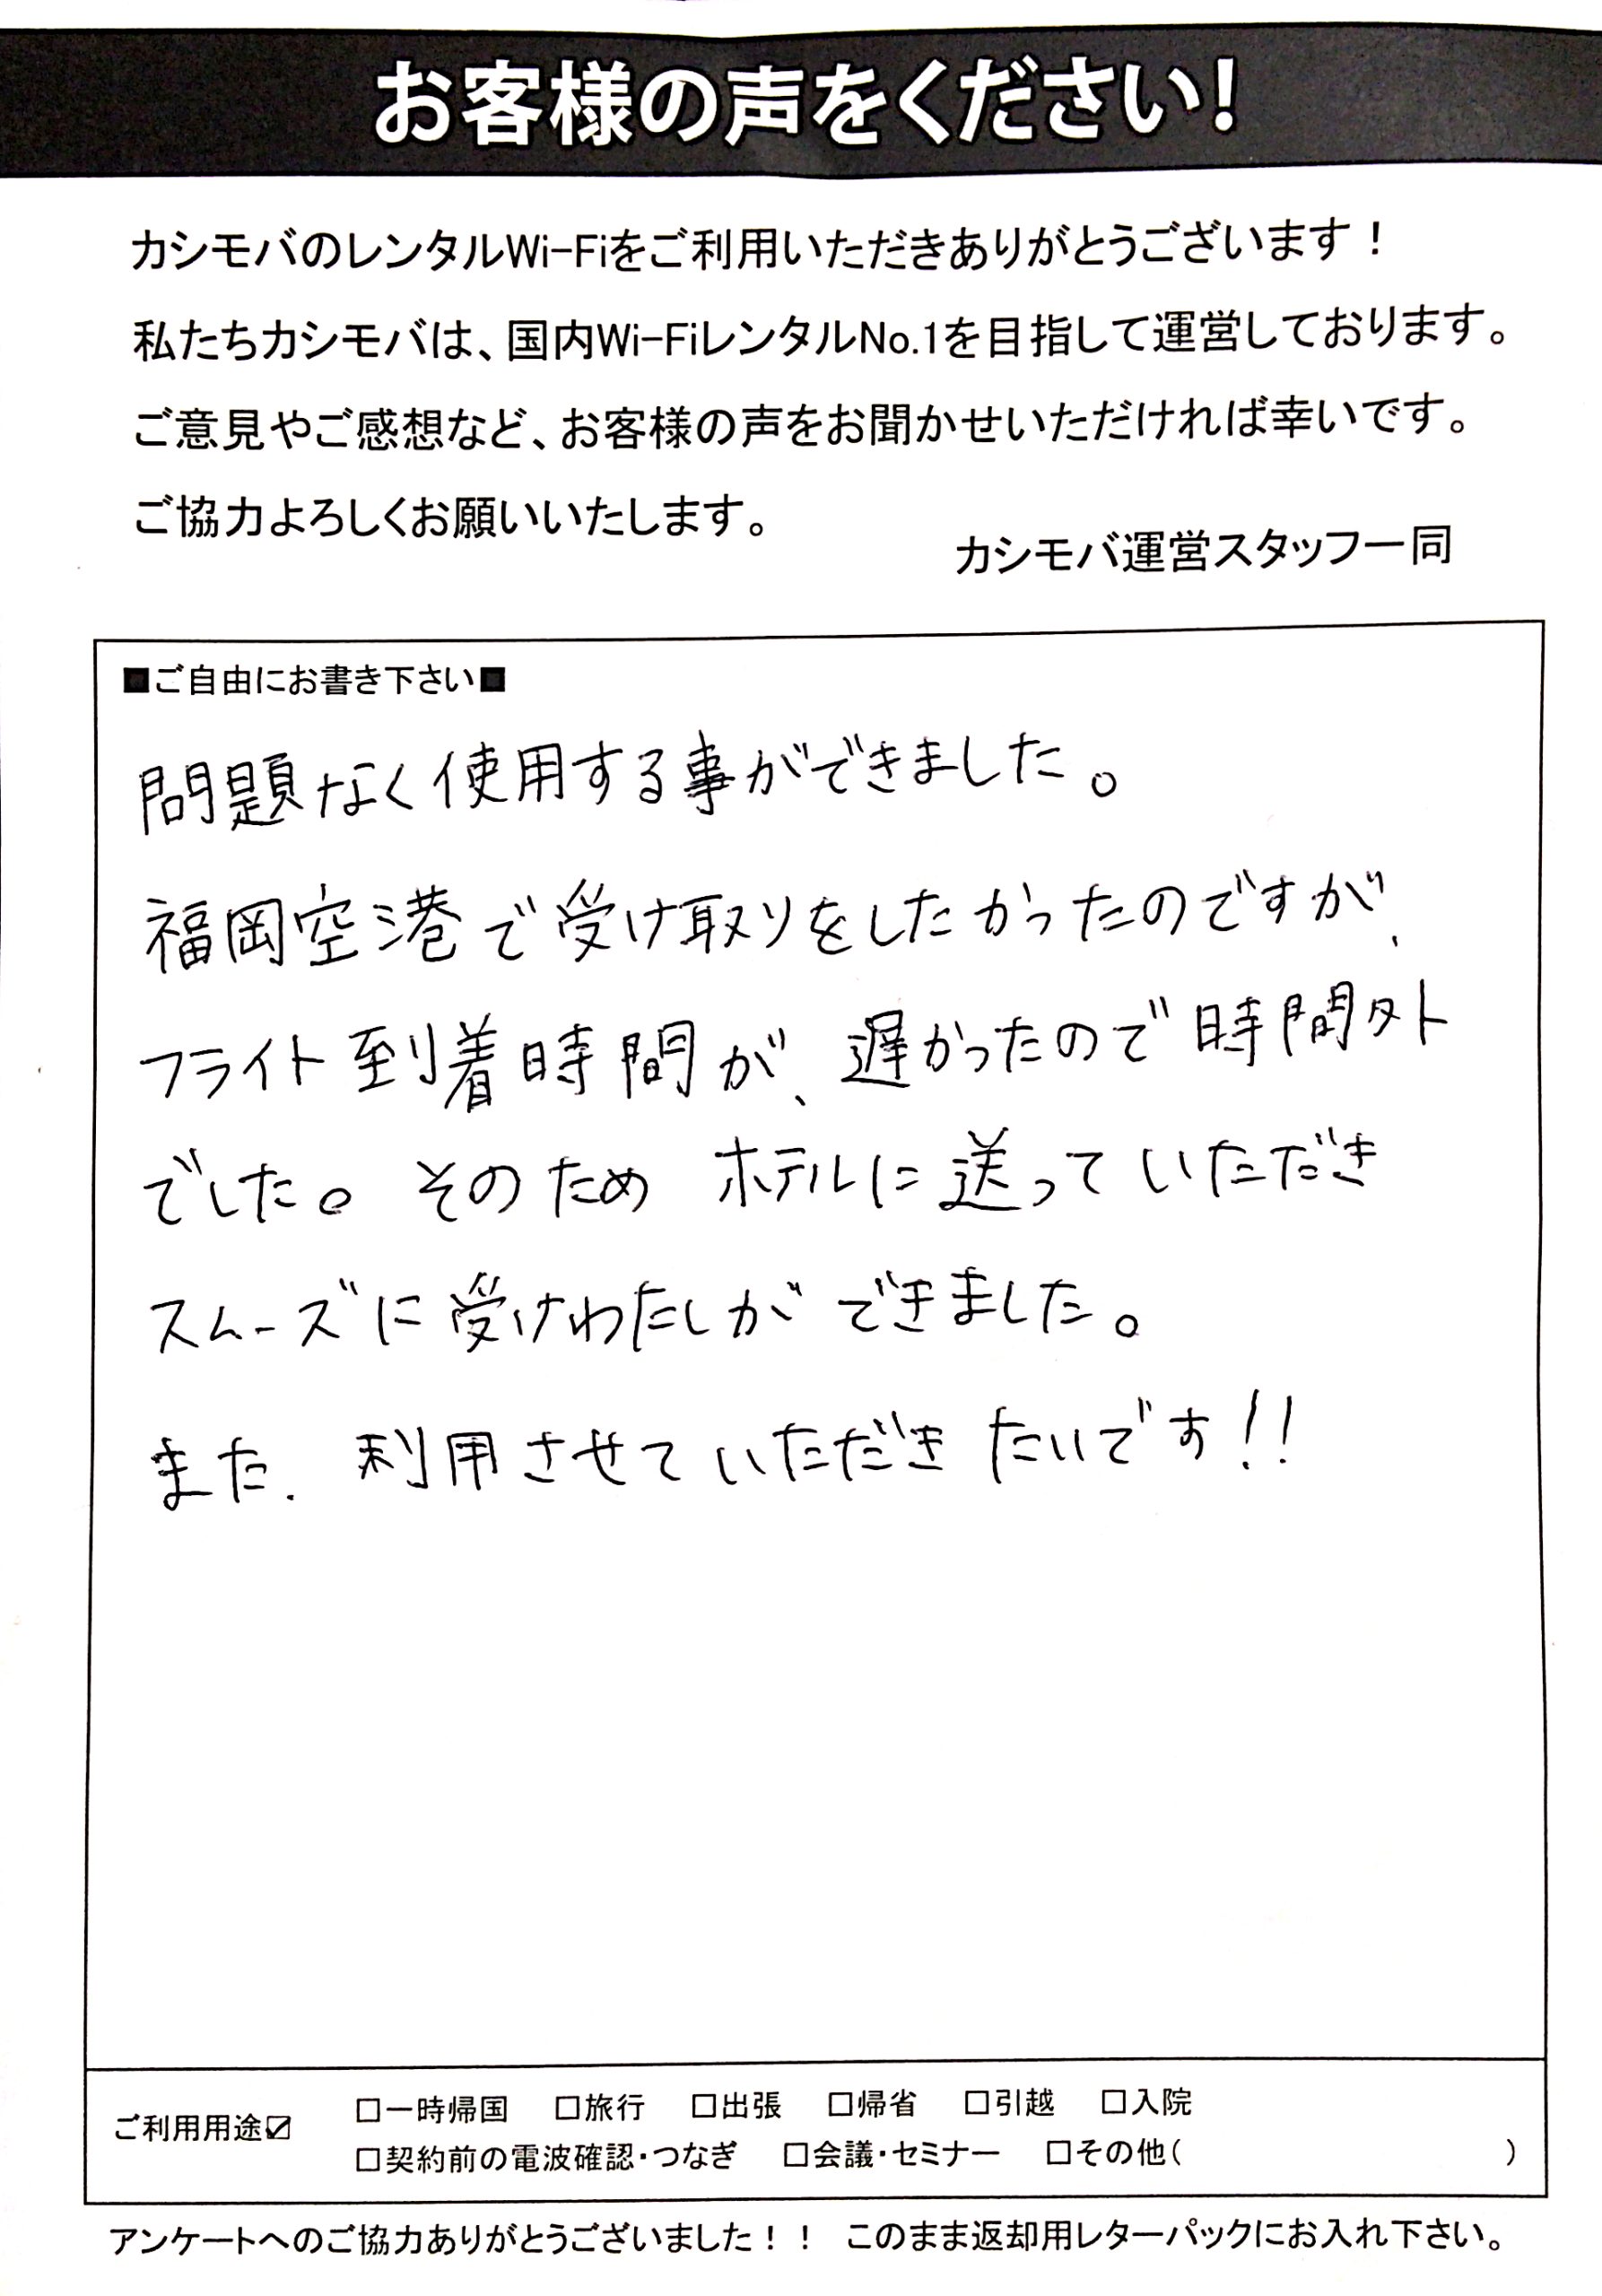 お客様の声をください！
カシモバのレンタルWi-Fiをご利用いただきありがとうございます！
私たちカシモバは、国内Wi-FiレンタルNo.1を目指して運営しております。
ご意見やご感想など、お客様の声をお聞かせいただければ幸いです。
ご協力よろしくお願いいたします。
カシモバ運営スタッフ一同
■ご自由にお書き下さい■
問題なく使用する事ができました。
福岡空港で受け取りをしたかったのですが、
フライト到着時間が、遅かったので時間外
でした。そのため ホテルに送っていただき
スムーズに受けわたしができました。
また、利用させていただきたいです!!
ご利用用途☑ □一時帰国 □旅行 □出張 □帰省 □引越 □入院
□契約前の電波確認・つなぎ □会議・セミナー □その他（ ）
アンケートへのご協力ありがとうございました！！ このまま返却用レターパックにお入れ下さい。